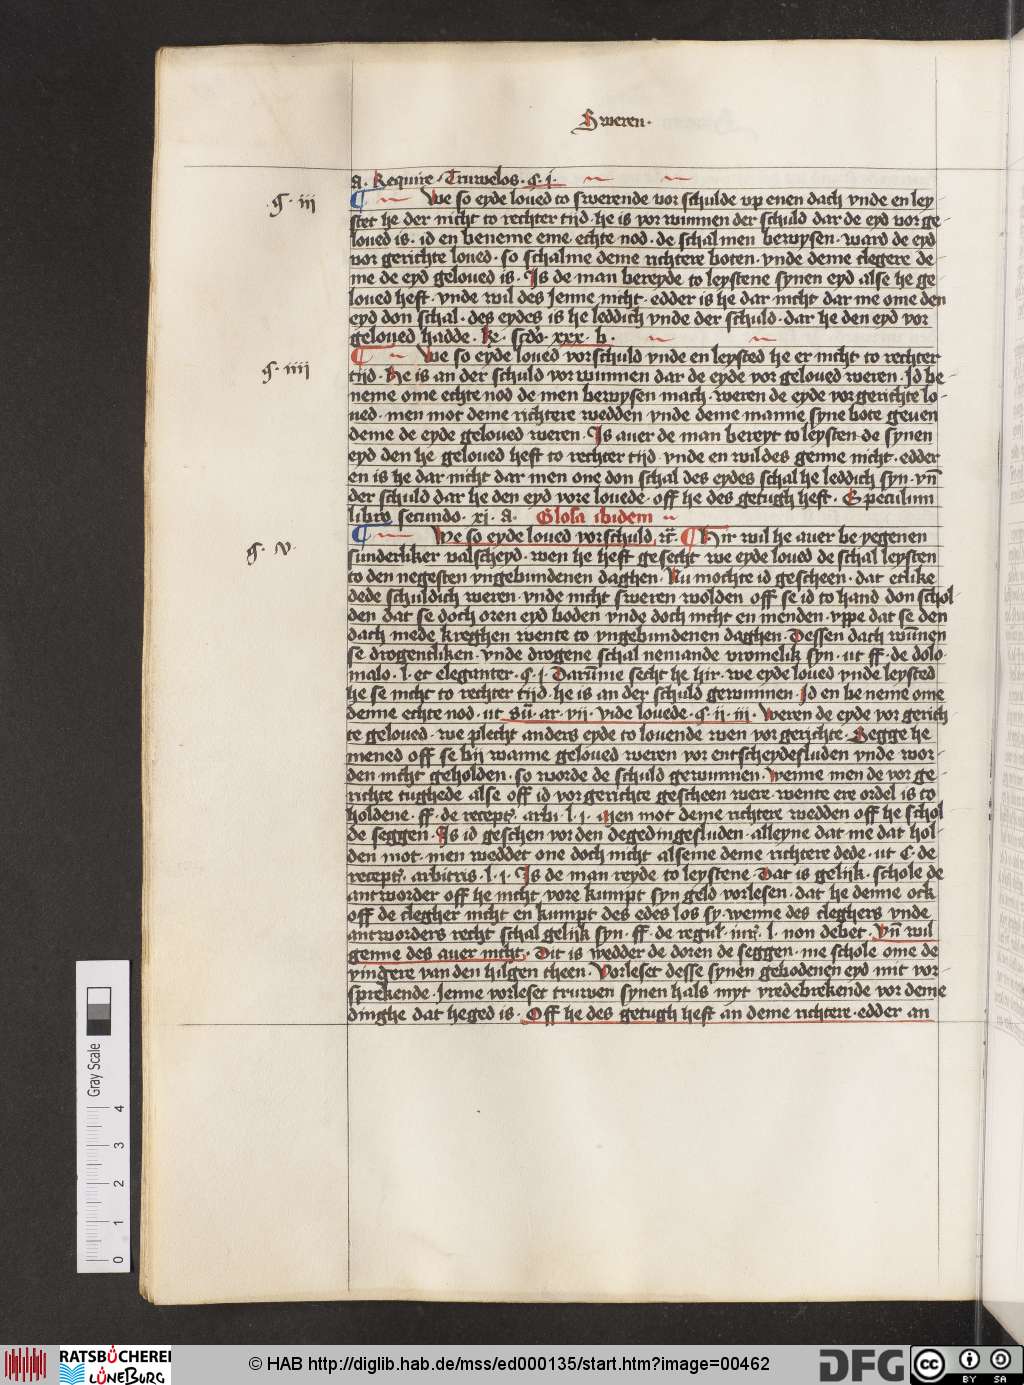 Sweren.
a. Require. Truwelos. q. i.
q. iii
We so eyde loued to swerende vor schulde vp enen dach vnde en ley
stet he der nicht to rechter tijd. he is vor wunnen der schuld dar de eyd vor ge
loued is. id en beneme eme echte nod. de schal men bewysen. ward de eyd
vor gerichte loued. so schal me deme richtere boten. vnde deme clegere de
me de eyd geloued is. Is de man bereyde to leystene synen eyd alse he ge
loued heft. vnde wil des Jenne nicht. edder is he dar nicht dar me ome den
eyd don schal. des eydes is he leddich vnde der schuld. dar he den eyd vor
geloued hadde. R. scdo. xxx. b.
q. iiii
We so eyde loued vorschuld vnde en leysted he er nicht to rechter
tijd. He is an der schuld vor wunnen dar de eyde vor geloued weren. Id be
neme ome echte nod de men bewysen mach. weren de eyde vor gerichte lo
ued. men mot deme richtere wedden vnde deme manne syne bote geuen
deme de eyde geloued weren. Is auer de man bereyt to leysten de synen
eyd den he geloued heft to rechter tijd. vnde en wil des genne nicht. edder
en is he dar nicht dar men one don schal des eydes schal he leddich syn. vn̄
der schuld dar he den eyd vore louede. off he des getugh heft. Speculum
libro secundo. xj. a. Glosa ibidem
q. v.
We so eyde loued vorschuld. rc. Hir wil he auer be yegenen
sunderliker valscheyd. wen he heft gesecht we eyde loued de schal leysten
to den negesten yngebundenen daghen. Nu mochte id gescheen. dat etlike
dede schuldich weren. vnde nicht sweren wolden off se id to hand don schol
den dat se doch oren eyd boden vnde doch nicht en menden. vppe dat se den
dach mede kreghen wente to yngebundenen daghen. Dessen dach wūnen
se drogentliken. vnde drogene schal nemande vromelik syn. ut ff. de dolo
malo. l. et eleganter. q. j. Darūme secht he hir. we eyde loued vnde leysted
he se nicht to rechter tijd. he is an der schuld gewunnen. Id en be neme ome
denne echte nod. ut sū. ar. vii. vide louede. q. ii. iii. Weren de eyde vor gerich
te geloued. we plecht anders eyde to louende wen vor gerichte. Segge he
mened off se bij wanne geloued weren vor entscheydesluden vnde wor
den nicht geholden. so worde de schuld gewunnen. Wenne men de vor ge
richte tughede alse off id vor gerichte gescheen were. wente ere ordel is to
holdene. ff. de recept. arbi. l. j. Men mot deme richtere wedden off he schol
de seggen. Is id geschen vor den degedingesluden. alleyne dat me dat hol
den mot. men weddet one doch nicht alseme deme richtere dede. ut C. de
recept. arbitris. l. j. Is de man reyde to leystene. Dat is gelijk. schole de
antworder off he nicht vore kumpt syn geld vorlesen. dat he denne ock
off de clegher nicht en kumpt des edes los sy. wenne des cleghers vnde
antworders recht schal gelijk syn. ff. de regul. iur. l. non debet. vn̄ wil
genne des auer nicht. Dit is wedder de doren de seggen. me schole ome de
vingere van den hilgen theen. Vorleset desse synen gebodenen eyd mit vor
sprekende. Jenne vorleset truwen synen hals myt vredebrekende vor deme
dinghe dat heged is. Off he des getugh heft an deme richtere. edder an
Gray Scale
0 1 2 3 4
RATSBÜCHEREI LÜNEBURG
© HAB http://diglib.hab.de/mss/ed000135/start.htm?image=00462
DFG
cc BY SA